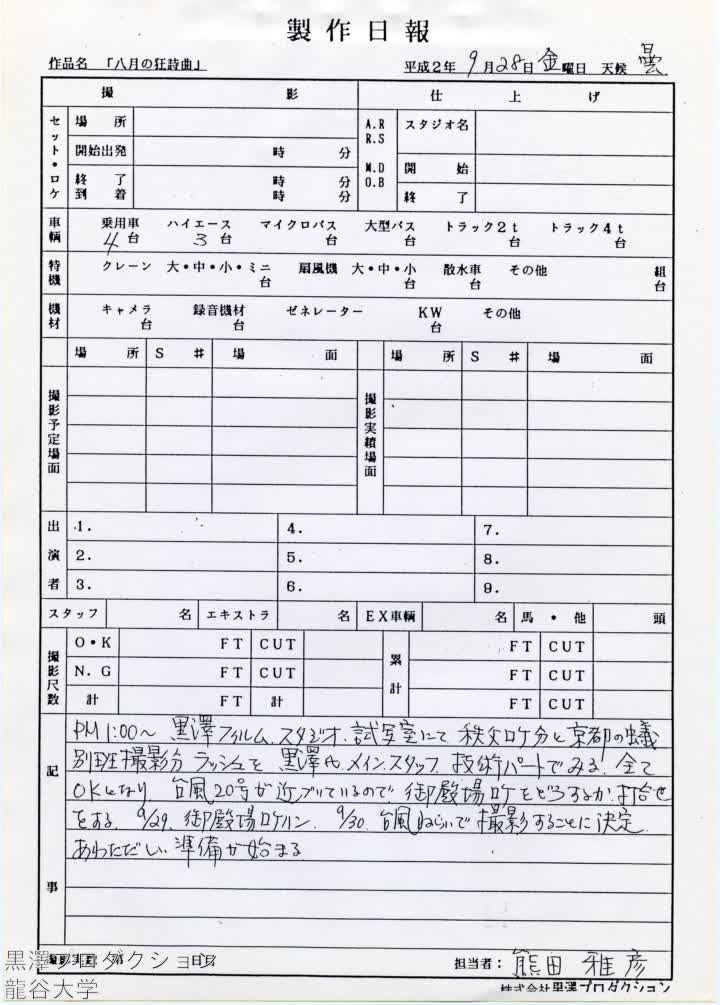 製作日報
作品名 「八月の狂詩曲」 平成2年 9月28日 金曜日 天候 曇
撮影 仕上げ
セット・ロケ 場所 A.R R.S スタジオ名
開始出発 時 分 M.D O.B 開始
終了到着 時 分 時 分 終了
車輌 乗用車 4台 ハイエース 3台 マイクロバス 台 大型バス 台 トラック2t 台 トラック4t 台
特機 クレーン 大・中・小・ミニ 台 扇風機 大・中・小 台 散水車 台 その他 組 台
機材 キャメラ 台 録音機材 台 ゼネレーター KW 台 その他
場所 S# 場面 場所 S# 場面
撮影予定場面 撮影実績場面
出演者 1. 4. 7.
2. 5. 8.
3. 6. 9.
スタッフ 名 エキストラ 名 EX車輌 名 馬・他 頭
撮影尺数 O・K FT CUT 累計 FT CUT
N.G FT CUT FT CUT
計 FT 計 FT CUT
記事
PM 1:00〜 黒澤フィルム.スタジオ.試写室にて 秩父ロケ分と京都の蟻
別班撮影分 ラッシュを 黒澤氏.メイン.スタッフ.技術パートでみる.全て
OKになり. 台風20号が近づいているので.御殿場ロケをどうするか.打合せ
をする. 9/29.御殿場ロケイン. 9/30.台風ねらいで撮影することに決定.
あわただしい準備が始まる
担当者: 熊田雅彦
株式会社黒澤プロダクション
黒澤プロダクション
龍谷大学